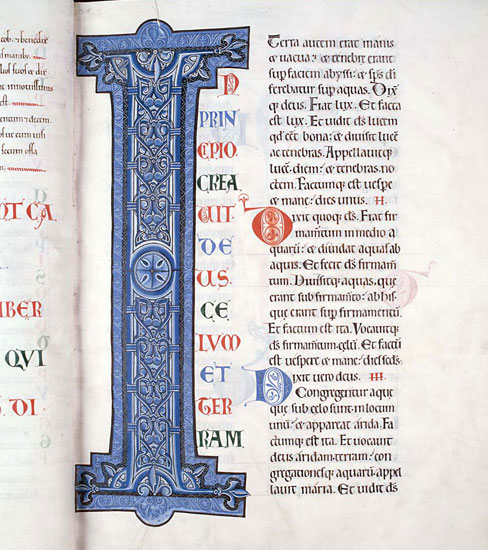 cob. & benedix
NT CA
IBER
QUI
DI
I N
PRIN
CIPIO
CREA
UIT
DE
US
CE
LUM
ET
TER
RAM
Terra autem erat inanis
& uacua: & tenebre erant
sup faciem abyssi: & sps di
ferebatur sup aquas. Dix
q; deus. Fiat lux. Et facta
est lux. Et uidit ds lucem
qd eet bona: & diuisit luce
ac tenebras. Appellauitq;
luce diem: & tenebras no
ctem. Factumq; est uespe
& mane: dies unus. II.
Dixit quoq; ds. Fiat fir
mamtum in medio a
quaru: & diuidat aquas ab
aquis. Et fecit ds firmam
tum. Diuisitq; aquas. que
erant sub firmamto: ab his
que erant sup firmamentu.
Et factum est ita. Vocauitq;
ds firmamtum celu. Et factu
est uespere & mane: dies scds.
Dixit uero deus. III.
Congregentur aque
que sub celo sunt in locum
unu: & appareat arida. Fa
ctumq; est ita. Et uocauit
deus aridam terram: con
gregationesq; aquaru appel
lauit maria. Et uidit ds